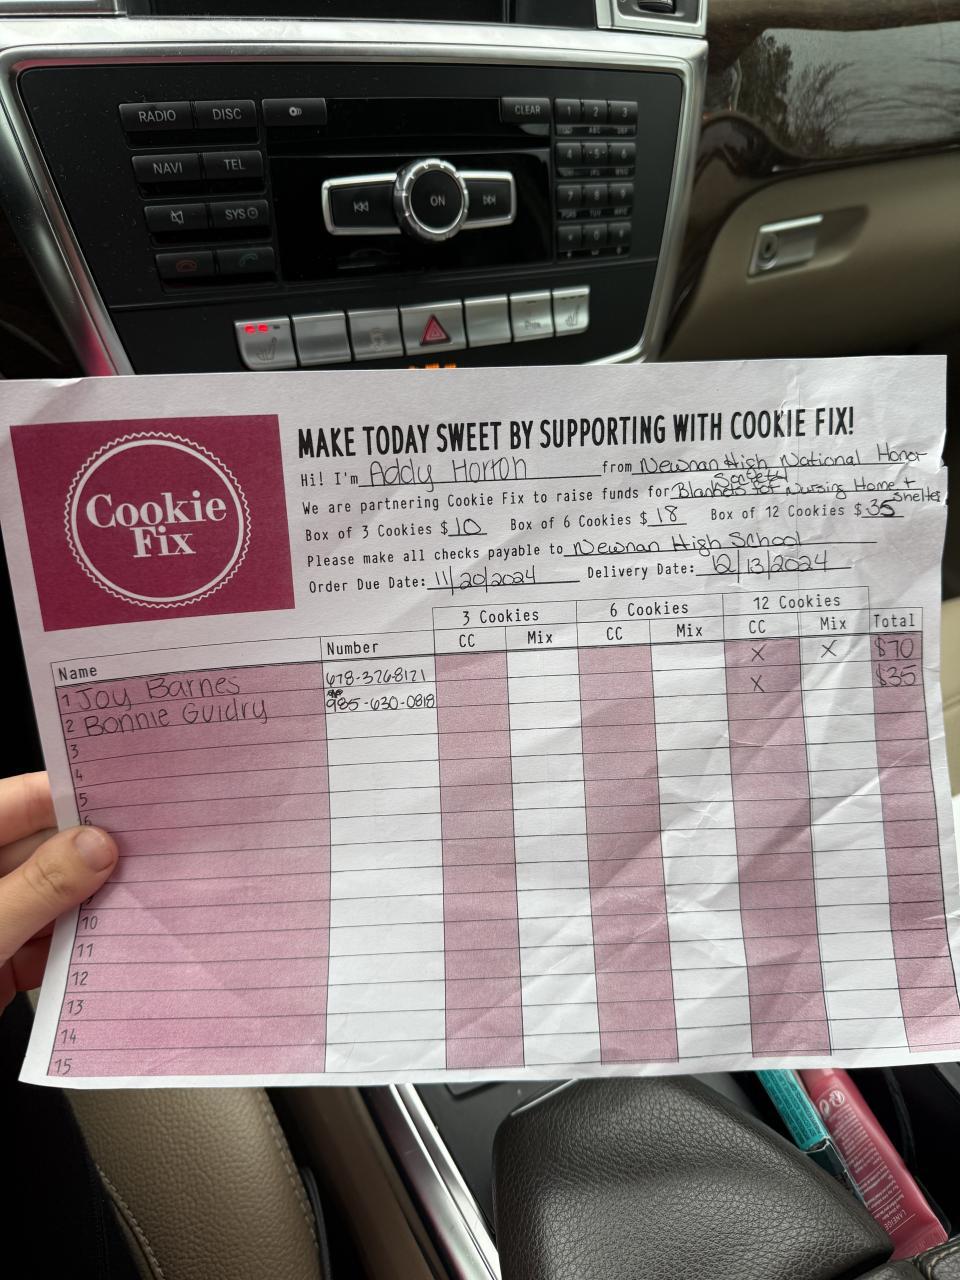 RADIO DISC CLEAR 1 2 3
ABC DEF
NAVI TEL ON 4 5 6
SYS 7 8 9
PQRS TUV WXYZ
* 0 #
Cookie
Fix
MAKE TODAY SWEET BY SUPPORTING WITH COOKIE FIX!
Hi! I'm Addy Horton from Newnan High National Honor
Society
We are partnering Cookie Fix to raise funds for Blankets for Nursing Home + Shelter
Box of 3 Cookies $10 Box of 6 Cookies $18 Box of 12 Cookies $35
Please make all checks payable to Newnan High School
Order Due Date: 11/20/2024 Delivery Date: 12/13/2024
3 Cookies 6 Cookies 12 Cookies
Name Number CC Mix CC Mix CC Mix Total
1 Joy Barnes 678-376-8171 X X $70
2 Bonnie Guidry 985-630-0818 X $35
3
4
5
6
9
10
11
12
13
14
15
LANEIGE